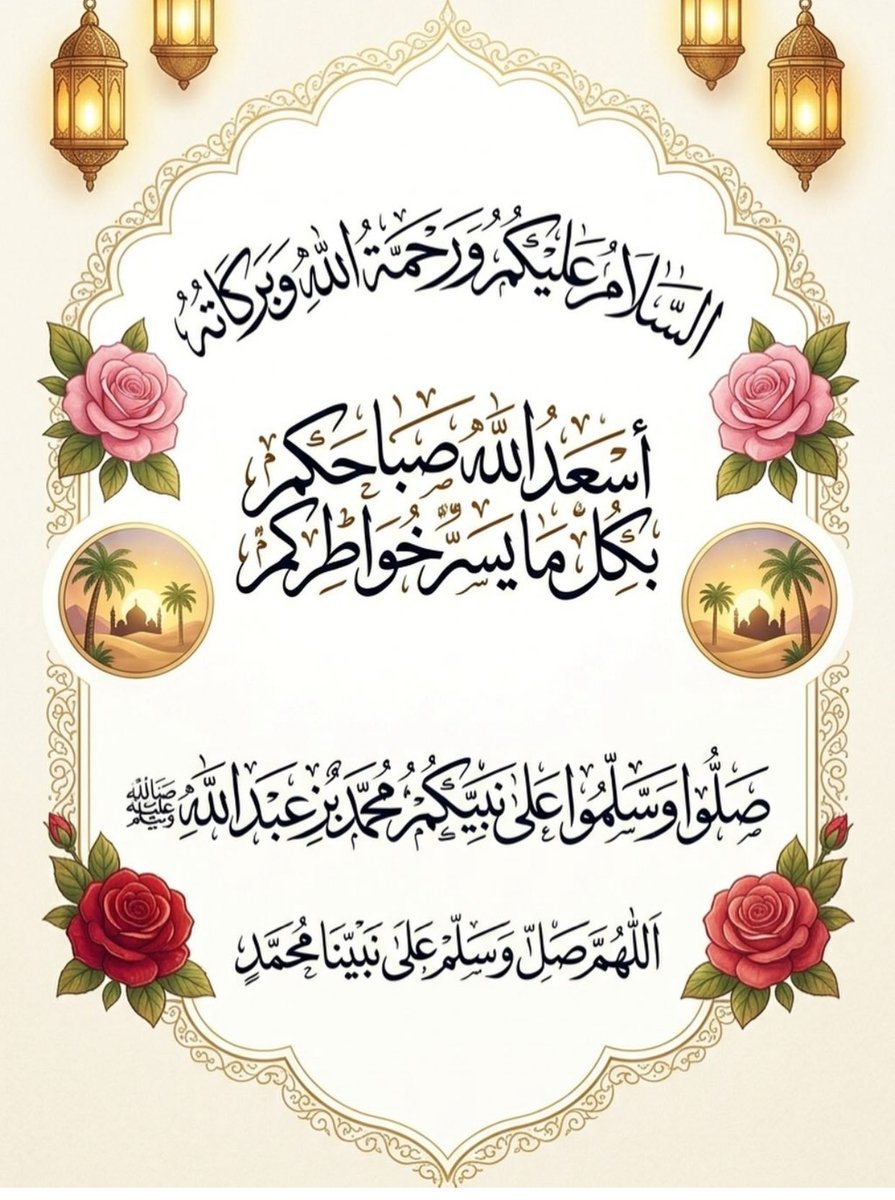 السَّلَامُ عَلَيْكُمُ وَرَحْمَةُ اللهِ وَبَرَكَاتُهُ
أَسْعَدُ اللَّهُ صَبَاحَكُم
بِكُلِّ مَا يَسُرُّ خُوَاطِرَكُم
صَلُّوا وَسَلِّمُوا عَلَى نَبِيِّكُمْ مُحَمَّدٌ بِنْ عَبْدَ اللَّهِ ﷺ
اَللّٰهُمَّ صَلِّ وَسَلِّمْ عَلَى نَبِيِّنَا مُحَمَّدٍ